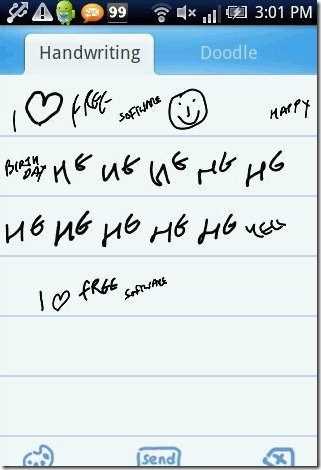 99 3:01 PM
Handwriting Doodle
I ♡ FREE SOFTWARE ☺ HAPPY
BIRTH DAY HE HE HE HE HE
HE HE HE HE HE
I ♡ FREE SOFTWARE
Send